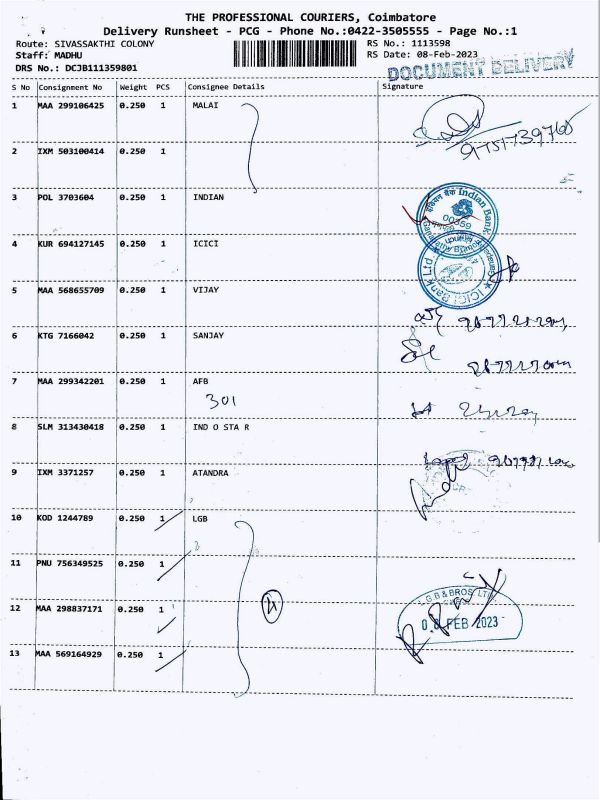 THE PROFESSIONAL COURIERS, Coimbatore
Delivery Runsheet - PCG - Phone No.:0422-3505555 - Page No.:1
Route: SIVASSAKTHI COLONY RS No.: 1113598
Staff: MADHU RS Date: 08-Feb-2023
DRS No.: DCJB111359801
DOCUMENT DELIVERY
S No Consignment No Weight PCS Consignee Details Signature
1 MAA 299106425 0.250 1 MALAI
2 IXM 503100414 0.250 1
3 POL 3703604 0.250 1 INDIAN
इंडियन बैंक Indian Bank
00359
4 KUR 694127145 0.250 1 ICICI
ICICI Bank Ltd
5 MAA 568655709 0.250 1 VIJAY
6 KTG 7166042 0.250 1 SANJAY
7 MAA 299342201 0.250 1 AFB
301
8 SLM 313430418 0.250 1 IND O STA R
9 IXM 3371257 0.250 1 ATANDRA
10 KOD 1244789 0.250 1 LGB
11 PNU 756349525 0.250 1
12 MAA 298837171 0.250 1
L.G.B & BROS. LTD.
08 FEB 2023
13 MAA 569164929 0.250 1